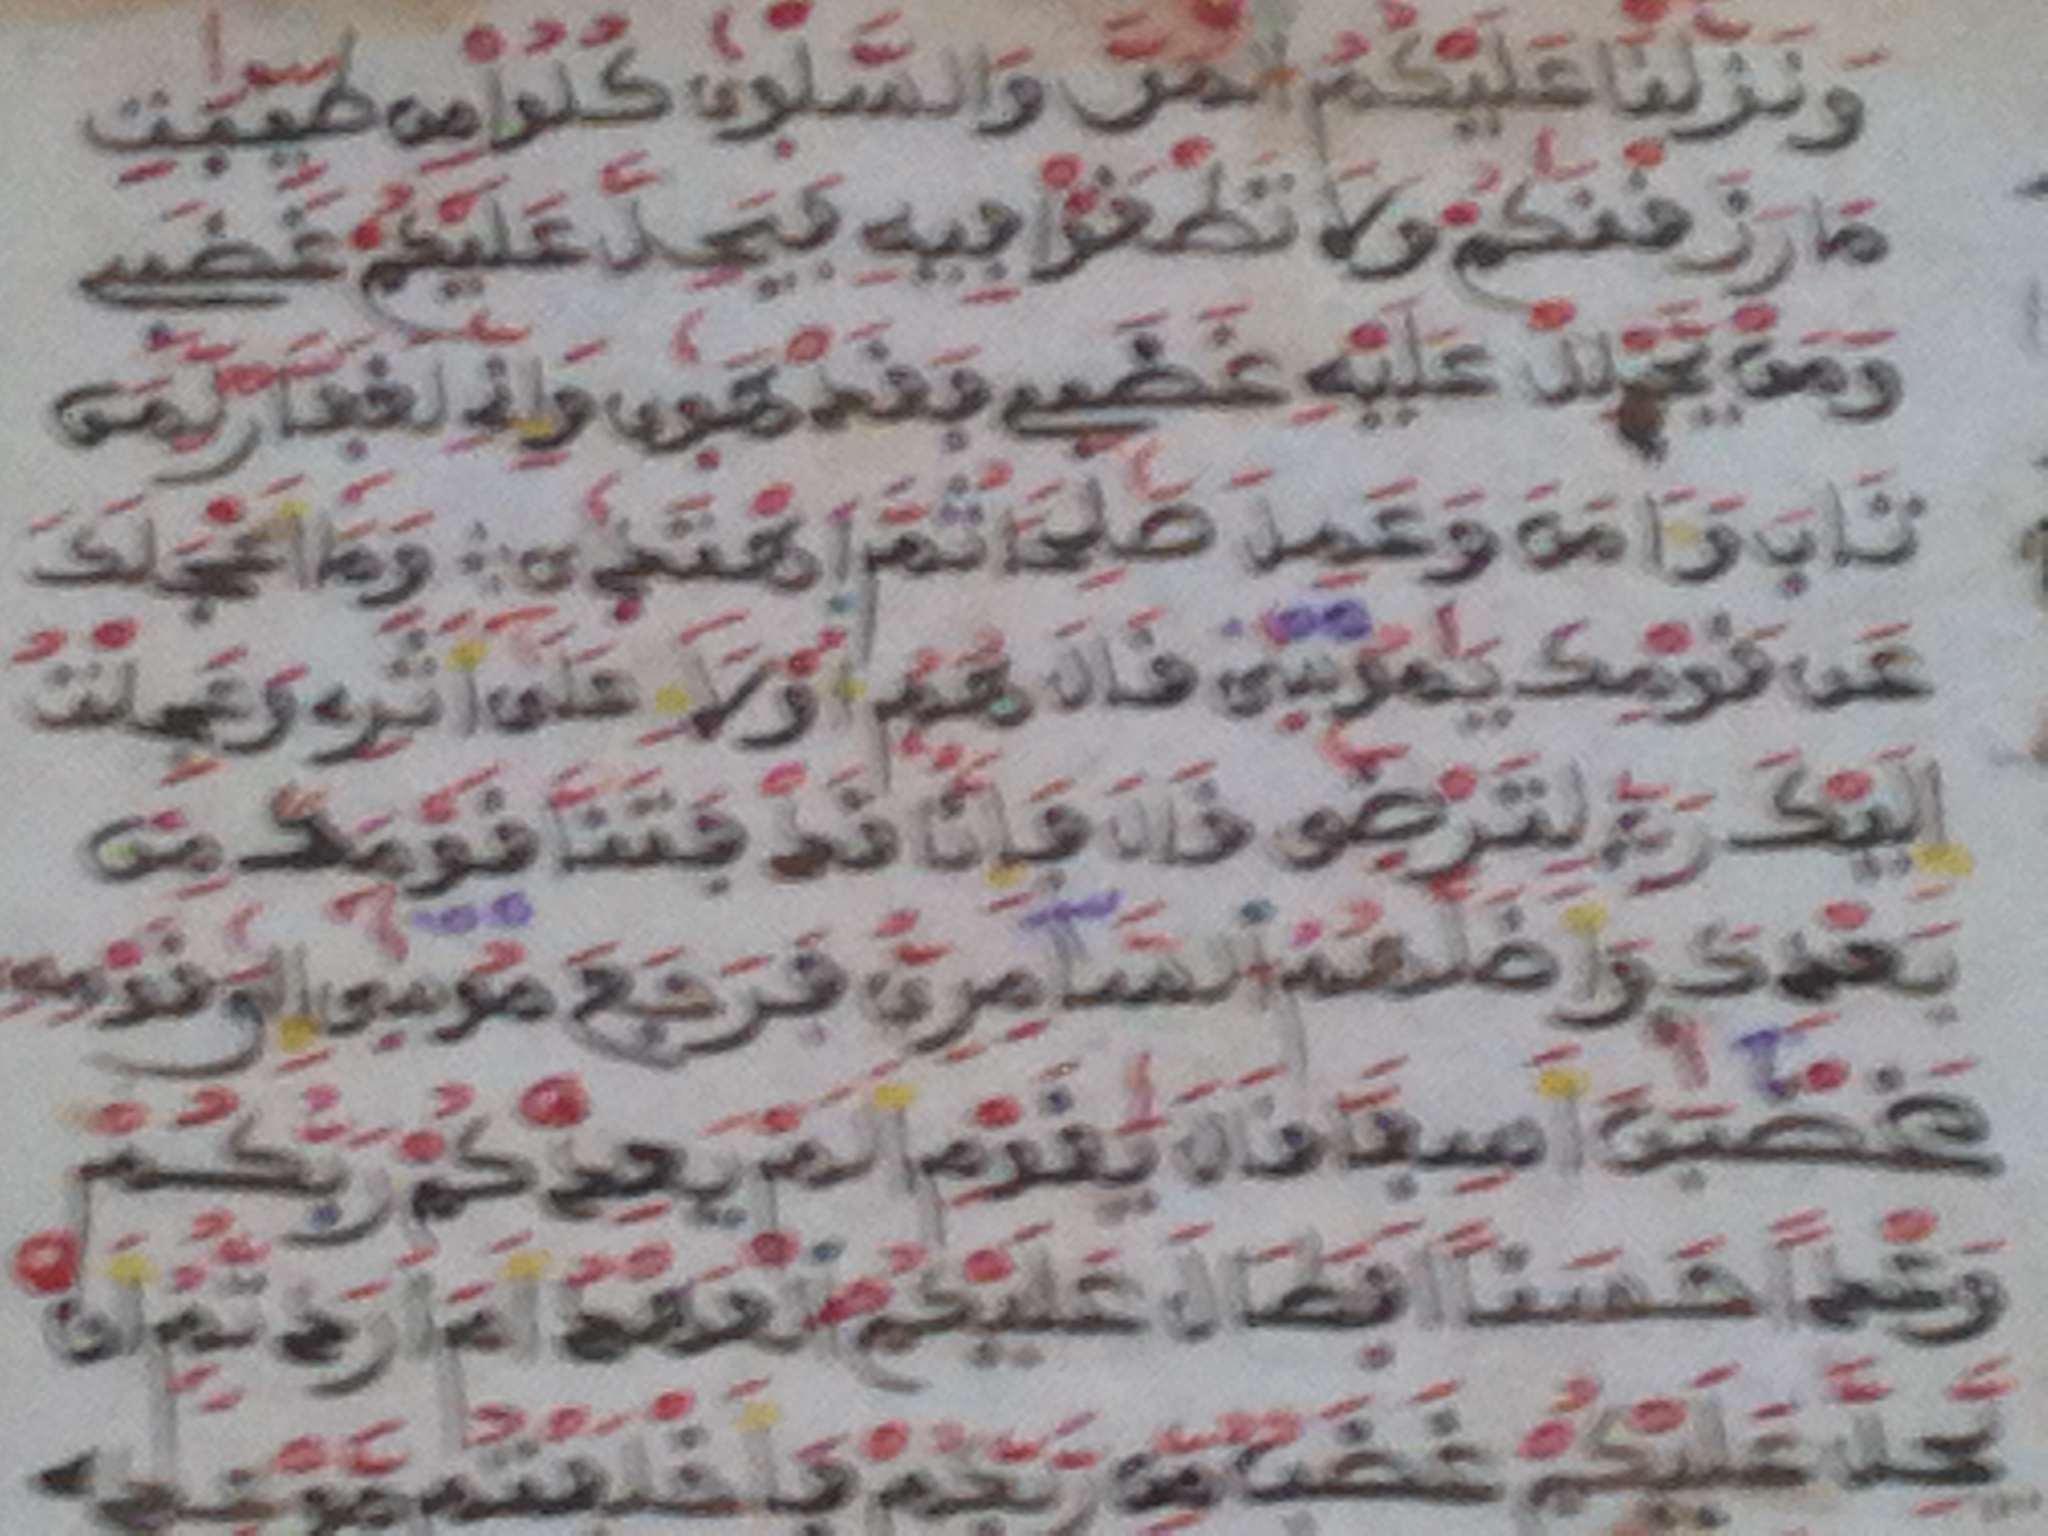 وَنَزَّلْنَا عَلَيْكُمُ الْمَنَّ وَالسَّلْوٜىٰ كُلُوا مِن طَيِّبَٰتِ
مَا رَزَقْنَٰكُمْ وَلَا تَطْغَوْا فِيهِ فَيَحِلَّ عَلَيْكُمْ غَضَبِے
وَمَنْ يَحْلِلْ عَلَيْهِ غَضَبِے فَقَدْ هَوٜىٰ وَإِنِّے لَغَفَّارٌ لِّمَن
تَابَ وَءَامَنَ وَعَمِلَ صَٰلِحًا ثُمَّ اَهْتَدٜىٰ وَمَا أَعْجَلَكَ
عَن قَوْمِكَ يَٰمُوسٜىٰ قَالَ هُمُ أُوْلَاءِ عَلَىٰ أَثَرِے وَعَجِلْتُ
إِلَيْكَ رَبِّ لِتَرْضٜىٰ قَالَ فَإِنَّا قَدْ فَتَنَّا قَوْمَكَ مِن
بَعْدِكَ وَأَضَلَّهُمُ السَّامِرِيُّ فَرَجَعَ مُوسٜىٰ إِلَىٰ قَوْمِهِ
غَضْبَٰنَ أَسِفًا قَالَ يَٰقَوْمِ أَلَمْ يَعِدْكُمْ رَبُّكُمْ
وَعْدًا حَسَنًا أَفَطَالَ عَلَيْكُمُ الْعَهْدُ أَمْ أَرَدتُّمْ أَن
يَحِلَّ عَلَيْكُمْ غَضَبٌ مِّن رَّبِّكُمْ فَأَخْلَفْتُم مَّوْعِدِے